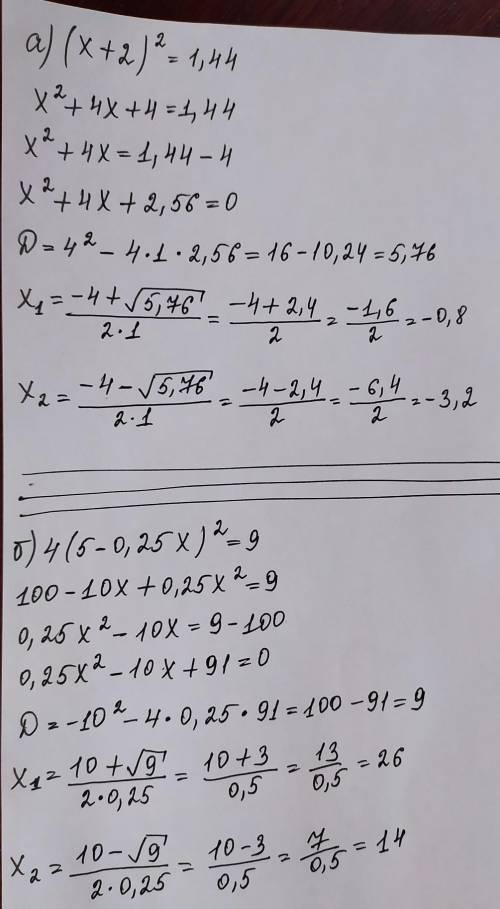 а) (x+2)² = 1,44
x² + 4x + 4 = 1,44
x² + 4x = 1,44 - 4
x² + 4x + 2,56 = 0
D = 4² - 4·1·2,56 = 16 - 10,24 = 5,76
x₁ = (-4 + √5,76)/(2·1) = (-4 + 2,4)/2 = (-1,6)/2 = -0,8
x₂ = (-4 - √5,76)/(2·1) = (-4 - 2,4)/2 = (-6,4)/2 = -3,2
б) 4(5 - 0,25x)² = 9
100 - 10x + 0,25x² = 9
0,25x² - 10x = 9 - 100
0,25x² - 10x + 91 = 0
D = -10² - 4·0,25·91 = 100 - 91 = 9
x₁ = (10 + √9)/(2·0,25) = (10 + 3)/0,5 = 13/0,5 = 26
x₂ = (10 - √9)/(2·0,25) = (10 - 3)/0,5 = 7/0,5 = 14